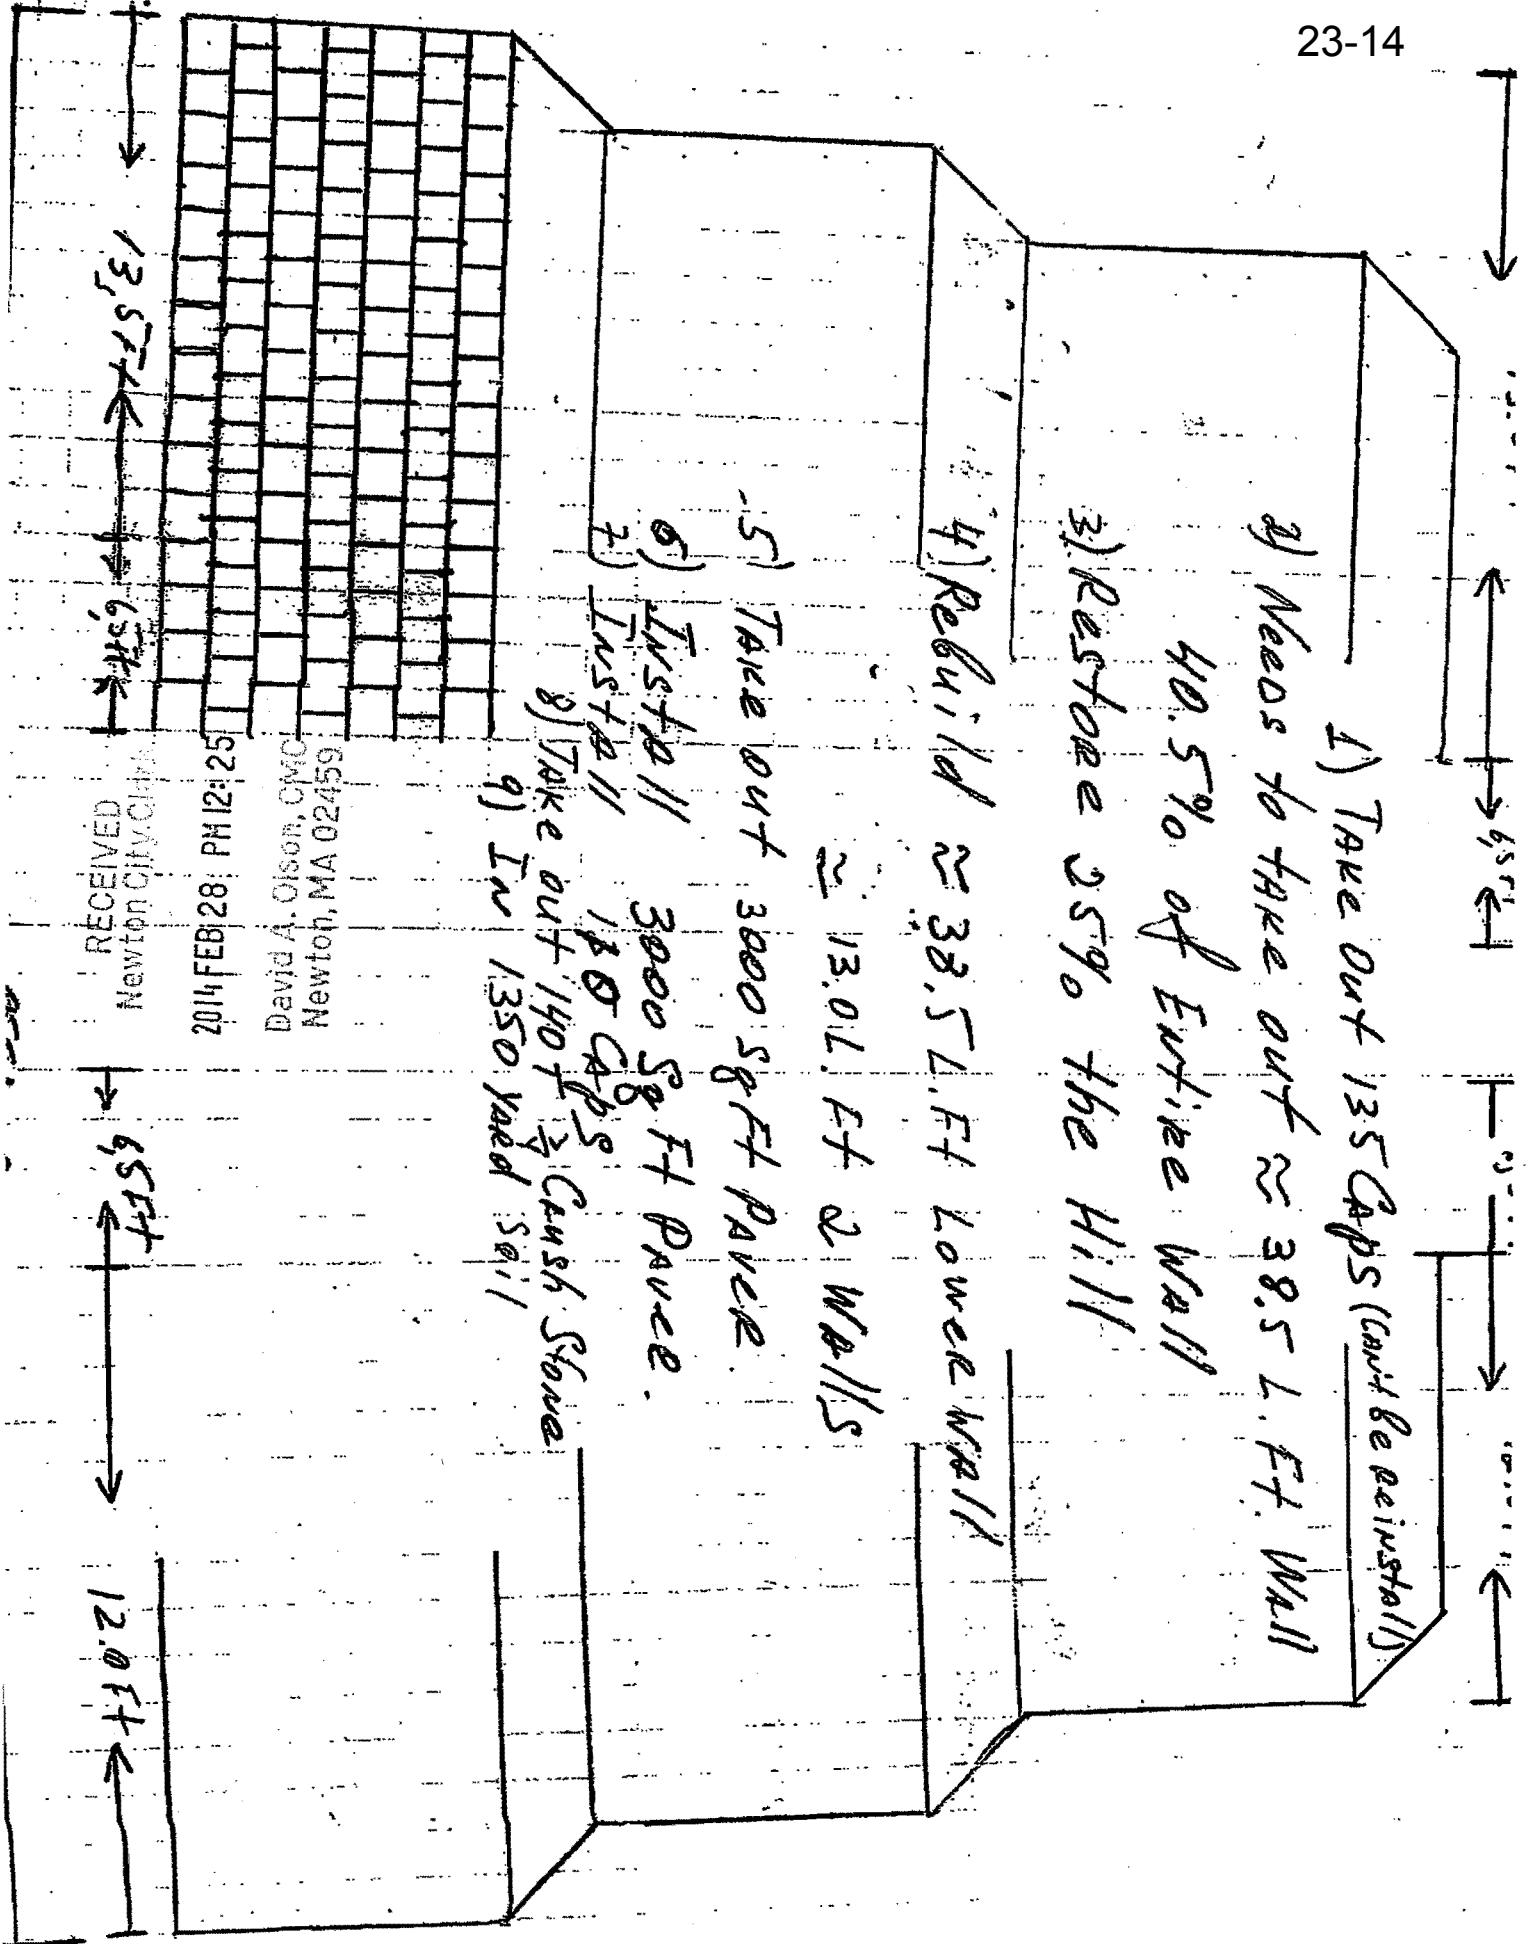 23-14
1) Take Out 135 Caps (Can't be Reinstall)
2) Needs to take out ≈ 38.5 L. Ft. Wall
40.5% of Entire Wall
3) Restore 25% the Hill
4) Rebuild ≈ 38.5 L. Ft Lower Wall
≈ 13.0 L. Ft 2 Walls
5) Take out 3000 Sq Ft Paver
6) Install 3000 Sq Ft Paver.
7) Install Caps
8) Take out 140 T 3/4 Crush Stone
9) In 1350 Yard Soil
13,5 Ft
6,5 Ft
6,5 Ft
12.0 Ft
RECEIVED
Newton City
2014 FEB 28 PM 12:25
David A. Olson, CMC
Newton, MA 02459